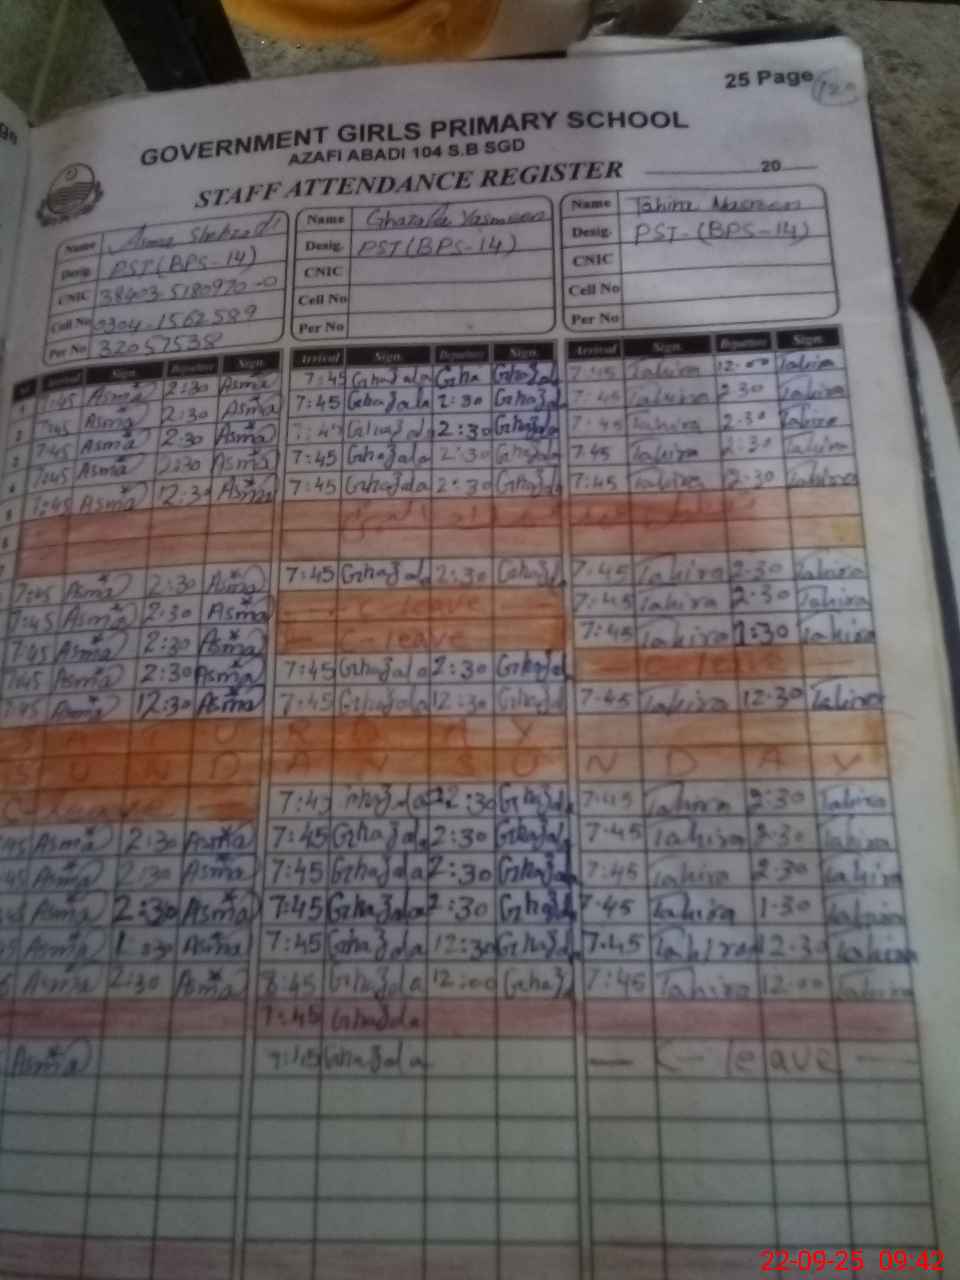 25 Page
120
GOVERNMENT GIRLS PRIMARY SCHOOL
AZAFI ABADI 104 S.B SGD
STAFF ATTENDANCE REGISTER 20
Name Asma Shehzadi
Desig. PST (BPS-14)
CNIC 38403-5180970-0
Cell No 0304-1562589
Per No 32057538
Name Ghazala Yasmeen
Desig. PST (BPS-14)
CNIC
Cell No
Per No
Name Tahira Nasreen
Desig. PST-(BPS-14)
CNIC
Cell No
Per No
Arrival Sign. Departure Sign. Arrival Sign. Departure Sign. Arrival Sign. Departure Sign.
1 7:45 Asma 2:30 Asma 7:45 Ghazala Gha Ghazala 7:45 Tahira 12:00 Tahira
2 7:45 Asma 2:30 Asma 7:45 Ghazala 2:30 Ghazala 7:45 Tahira 2:30 Tahira
3 7:45 Asma 2:30 Asma 7:45 Ghazala 2:30 Ghazala 7:45 Tahira 2:30 Tahira
4 7:45 Asma 2:30 Asma 7:45 Ghazala 2:30 Ghazala 7:45 Tahira 2:30 Tahira
5 7:45 Asma 2:30 Asma 7:45 Ghazala 2:30 Ghazala 7:45 Tahira 2:30 Tahira
6
7
7:45 Asma 2:30 Asma 7:45 Ghazala 2:30 Ghazala 7:45 Tahira 2:30 Tahira
7:45 Asma 2:30 Asma C leave 7:45 Tahira 2:30 Tahira
7:45 Asma 2:30 Asma C-leave 7:45 Tahira 1:30 Tahira
7:45 Asma 2:30 Asma 7:45 Ghazala 2:30 Ghazala C leave
7:45 Asma 12:30 Asma 7:45 Ghazala 12:30 Ghazala 7:45 Tahira 12:30 Tahira
S A T U R D A Y
S U N D A Y S U N D A Y
C-leave 7:45 Ghazala 2:30 Ghazala 7:45 Tahira 2:30 Tahira
:45 Asma 2:30 Asma 7:45 Ghazala 2:30 Ghazala 7:45 Tahira 2:30 Tahira
:45 Asma 2:30 Asma 7:45 Ghazala 2:30 Ghazala 7:45 Tahira 2:30 Tahira
Asma 2:30 Asma 7:45 Ghazala 2:30 Ghazala 7:45 Tahira 1:30 Tahira
Asma Asma 7:45 Ghazala 12:30 Ghazala 7:45 Tahira 12:30 Tahira
Asma 2:30 Asma 8:45 Ghazala 12:00 Ghazala 7:45 Tahira 12:00 Tahira
7:45 Ghazala
Asma 7:45 Ghazala C-leave
22-09-25 09:42